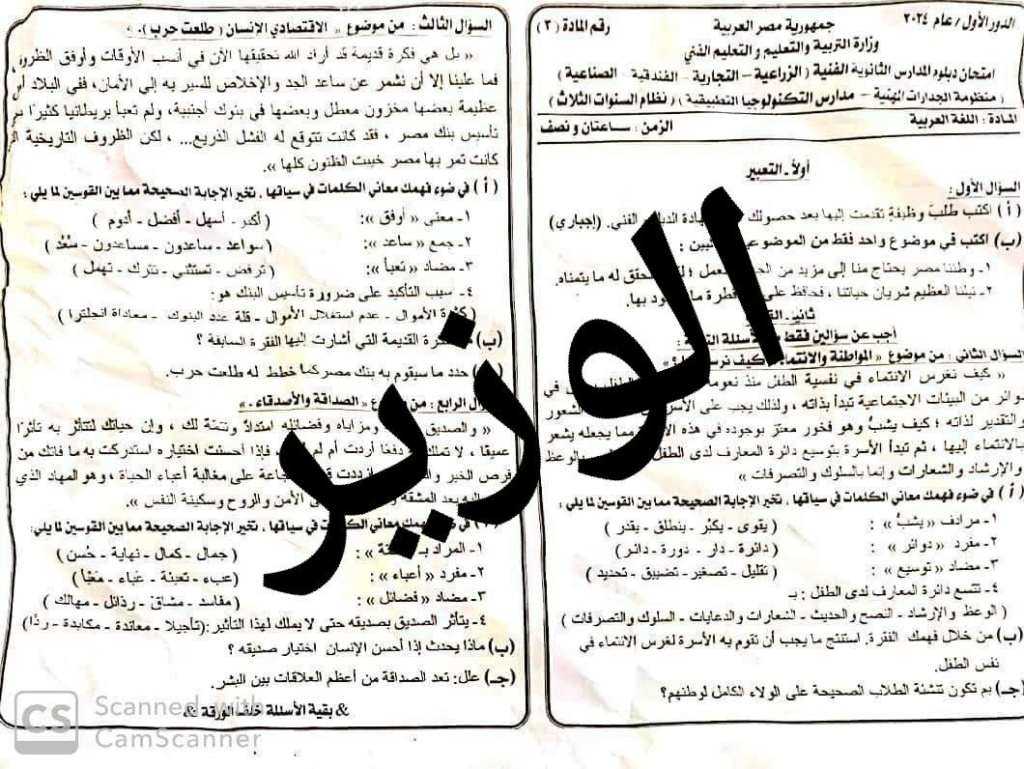 الدور الأول / عام ٢٠٢٤
جمهورية مصر العربية
رقم المادة ( ٣ )
وزارة التربية والتعليم و التعليم الفني
امتحان دبلوم المدارس الثانوية الفنية ( الزراعية - التجارية - الفندقية - الصناعية )
( منظومة الجدارات المهنية - مدارس التكنولوجيا التطبيقية ) ( نظام السنوات الثلاث )
المادة : اللغة العربية
الزمن : ساعتان و نصف
أولاً ـ التعبير
السؤال الأول :
( أ ) اكتب طلبَ وظيفةٍ تقدمت إليها بعد حصولك الفني. (إجباري)
(ب) اكتب في موضوع واحد فقط من الموضوعين :
١- وطننا مصر يحتاج منا إلى مزيد من العمل ؛ له ما يتمناه.
٢- نيلنا العظيم شريان حياتنا ، فحافظ على قطرة بها.
أجب عن سؤالين فقط
السؤال الثاني : من موضوع « المواطنة والانتماء كيف
« كيف نغرس الانتماء في نفسية الطفل منذ نعومة في
دوائر من البيئات الاجتماعية تبدأ بذاته ، ولذلك يجب على الأسرة الشعور
والتقدير لذاته ؛ كيف يشبُّ وهو فخور معتز بوجوده في هذه مما يجعله يشعر
بالانتماء إليها ، ثم تبدأ الأسرة بتوسيع دائرة المعارف لدى الطفل
والإرشاد و الشعارات و إنما بالسلوك و التصرفات »
( أ ) في ضوء فهمك معاني الكلمات في سياقها ، تخير الإجابة الصحيحة مما بين القوسين لما يلي:
١- مرادف « يشبُّ » : ( يقوى - يكبُر - ينطلق - يقدر )
٢- مفرد « دوائر » : ( دائرة - دار - دورة - دائر )
٣- مضاد « توسيع » : ( تقليل - تصغير - تضييق - تحديد )
٤- تتسع دائرة المعارف لدى الطفل : بـ
( الوعظ والإرشاد - النصح والحديث - الشعارات والدعايات - السلوك والتصرفات )
(ب) من خلال فهمك الفقرة. استنتج ما يجب أن تقوم به الأسرة لغرس الانتماء في
نفس الطفل.
(جـ) بم تكون تنشئة الطلاب الصحيحة على الولاء الكامل لوطنهم؟
السؤال الثالث : من موضوع « الاقتصادي الإنسان ( طلعت حرب ) . »
« بل هي فكرة قديمة قد أراد الله تحقيقها الآن في أنسب الأوقات وأوفق الظروف
فما علينا إلا أن نشمر عن ساعد الجد والإخلاص للسير به إلى الأمان، ففي البلاد
عظيمة بعضها مخزون معطل وبعضها في بنوك أجنبية، ولم تعبأ بريطانيا كثيرًا
تأسيس بنك مصر ، فقد كانت تتوقع له الفشل الذريع... ، لكن الظروف التاريخية
كانت تمر بها مصر خيبت الظنون كلها ».
( أ ) في ضوء فهمك معاني الكلمات في سياقها ، تخير الإجابة الصحيحة مما بين القوسين لما يلي:
١- معنى « أوفق »: ( أكبر - أسهل - أفضل - أدوم )
٢- جمع « ساعد »: ( سواعد - ساعدون - مساعدون - سُعُد )
٣- مضاد « تعبأ »: ( ترفض - تستثني - تترك - تهمل )
٤- سبب التأكيد على ضرورة تأسيس البنك هو:
( كثرة الأموال - عدم استغلال الأموال - قلة عدد البنوك - معاداة انجلترا )
(ب) القديمة التي أشارت إليها الفقرة السابقة ؟
حدد ما سيقوم به بنك مصر كما خطط له طلعت حرب.
الرابع : من « الصداقة والأصدقاء . »
« والصديق ومزاياه وفضائله امتدادٌ وتتمة لك ، وإن حياتك لتتأثر به تأثرًا
عميقا ، لا تملك دفعًا أردت أم لم فإذا أحسنت اختياره استدركت به ما فاتك من
فرص الخير على مغالبة أعباء الحياة ، وهو المهاد الذي
إليه بعد المشقة الأمن والروح وسكينة النفس ».
فهمك معاني الكلمات في سياقها ، تخير الإجابة الصحيحة مما بين القوسين لما يلي:
١- المراد بـ ( جمال - كمال - نهاية - حُسن )
٢- مفرد « أعباء » : ( عبء - تعبئة - عباء - معبأ )
٣- مضاد « فضائل » : ( مفاسد - مشاق - رذائل - مهالك )
٤- يتأثر الصديق بصديقه حتى لا يملك لهذا التأثير: (تأجيلا - معاندة - مكابدة - ردًّا)
(ب) ماذا يحدث إذا أحسن الإنسان اختيار صديقه ؟
(جـ) علل: تعد الصداقة من أعظم العلاقات بين البشر.
& بقية الأسئلة خلف الورقة &
الوزير
CS Scanned with
CamScanner